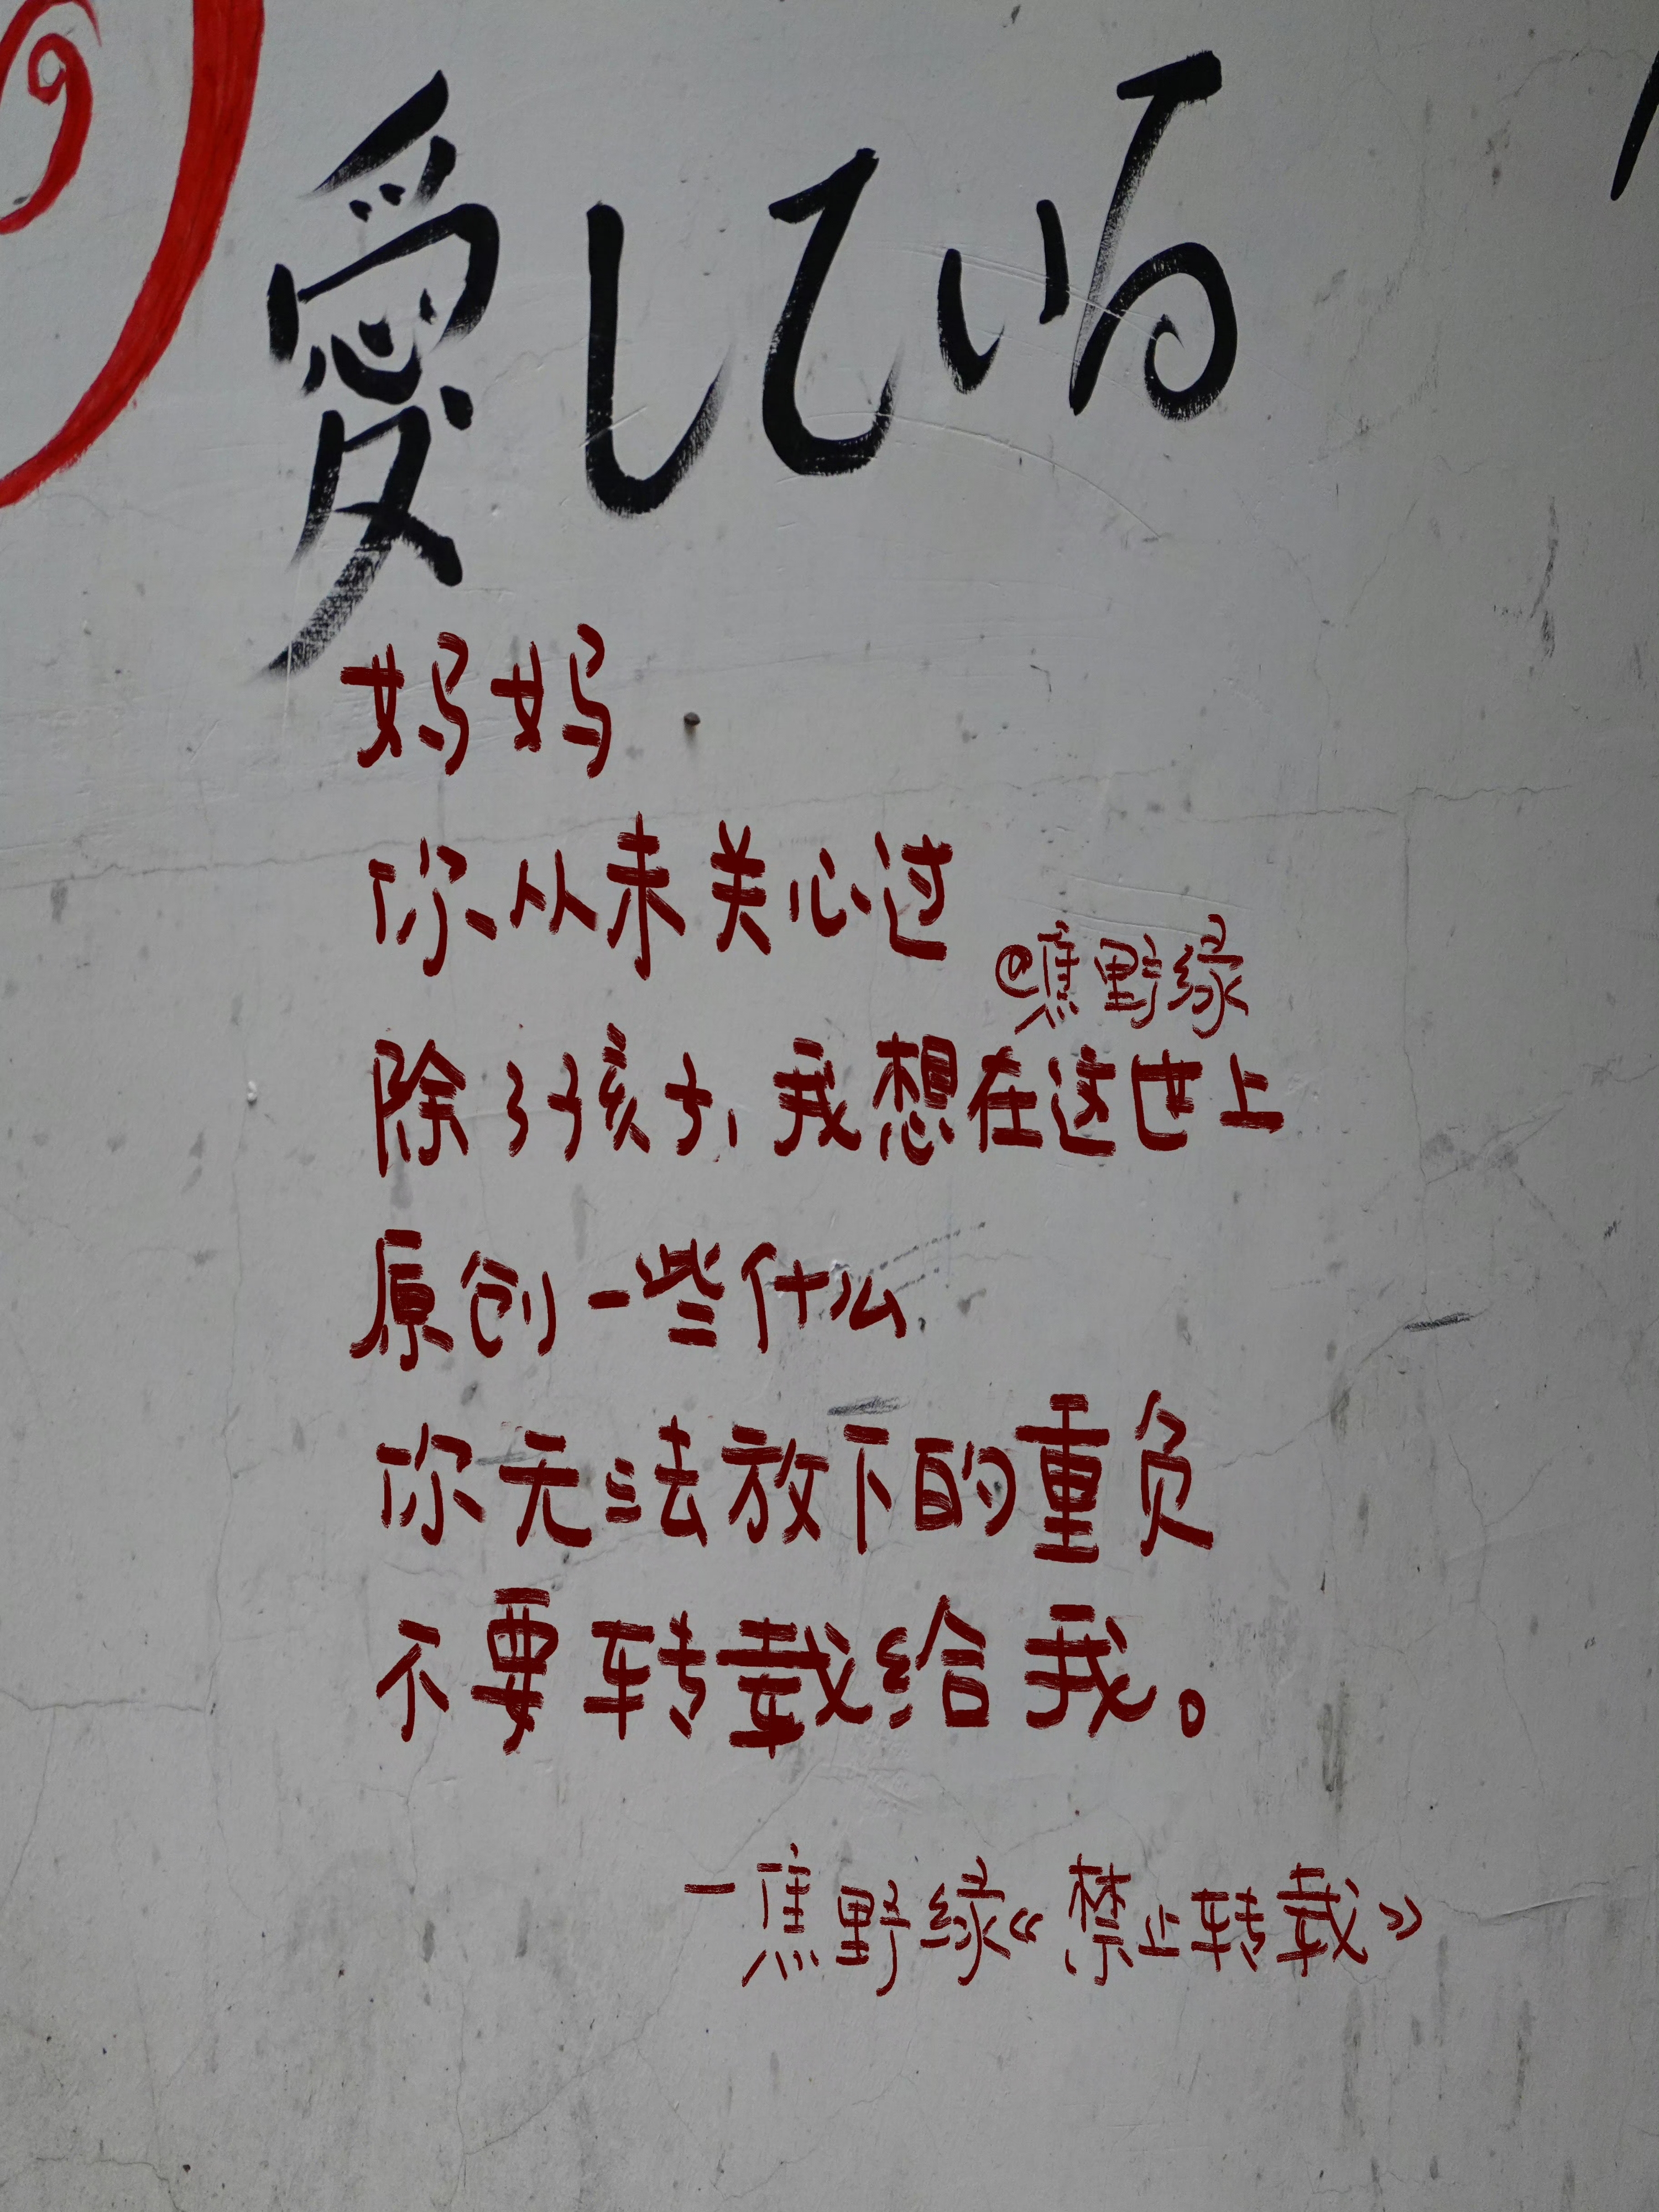 愛している
妈妈
你从未关心过
@蕉野缘
除了孩子，我想在这世上
原创一些什么
你无法放下的重负
不要转载给我。
—蕉野缘《禁止转载》